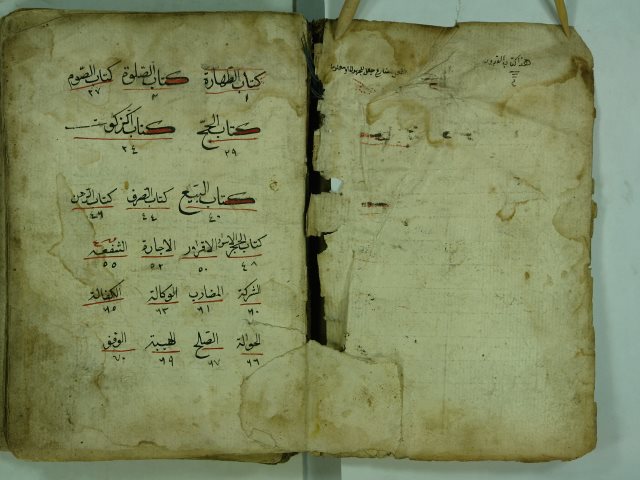 هذا كتاب القدوري
كتاب الطهارة كتاب الصلوة كتاب الصوم
١ ٢٧
كتاب الحج كتاب الزكوت
٢٩ ٢٤
كتاب البيع كتاب الصرف كتاب الرهن
٤٠ ٤٤ ٤٦
كتاب الحجر الاقرور الاجارة الشفعة
٤٨ ٥٠ ٥٢ ٥٥
الشركة المضارب الوكالة الكفالة
٦٠ ٦١ ٦٣ ٦٥
الحوالة الصلح الهبة الوقف
٦٦ ٦٧ ٦٩ ٧٠